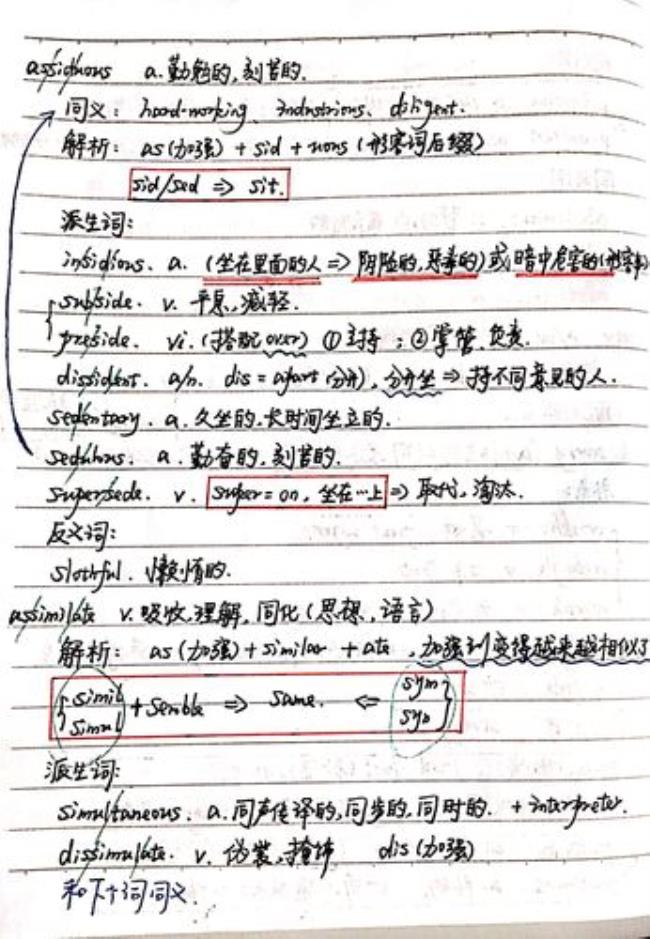 assiduous a.勤勉的,刻苦的.
同义: hard-working industrious、diligent.
解析: as(加强) + sid + uous (形容词后缀)
sid/sed ⇒ sit.
派生词:
insidious. a. (坐在里面的人 ⇒ 阴险的,恶毒的)或暗中危害的(形容事)
subside. v. 平息,减轻.
preside. vi.(搭配over) ①主持;②掌管,负责.
dissident. a/n. dis = apart (分开),分开坐 ⇒ 持不同意见的人.
sedentary. a.久坐的,长时间坐立的.
sedulous. a.勤奋的,刻苦的.
supersede. v. super = on, 坐在…上 ⇒ 取代,淘汰.
反义词:
slothful. 懒惰的.
assimilate v.吸收,理解,同化(思想,语言)
解析: as(加强) + similar + ate ,加强到变得越来越相似了
simil simul + semble ⇒ same. ⇐ sym syn
派生词:
simultaneous. a.同声传译的,同步的,同时的. + interpreter.
dissimulate. v. 伪装,掩饰 dis(加强)
和下个词同义.